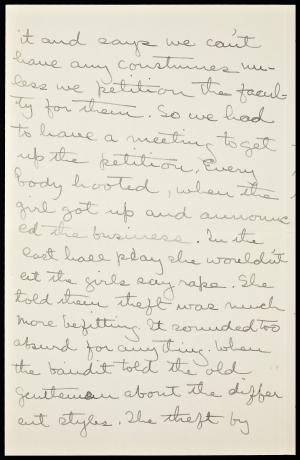 it and says we can't
have any constumes un-
less we petition the facul-
ty for them. So we had
to have a meeting to get
up the petition. Every
body hooted, when the
girl got up and announc
ed the business. In the
east hall play she wouldn't
let the girls say rape. She
told them theft was much
more befitting. It sounded too
absurd for anything. When
the bandit told the old
gentleman about the differ
ent styles. The theft by